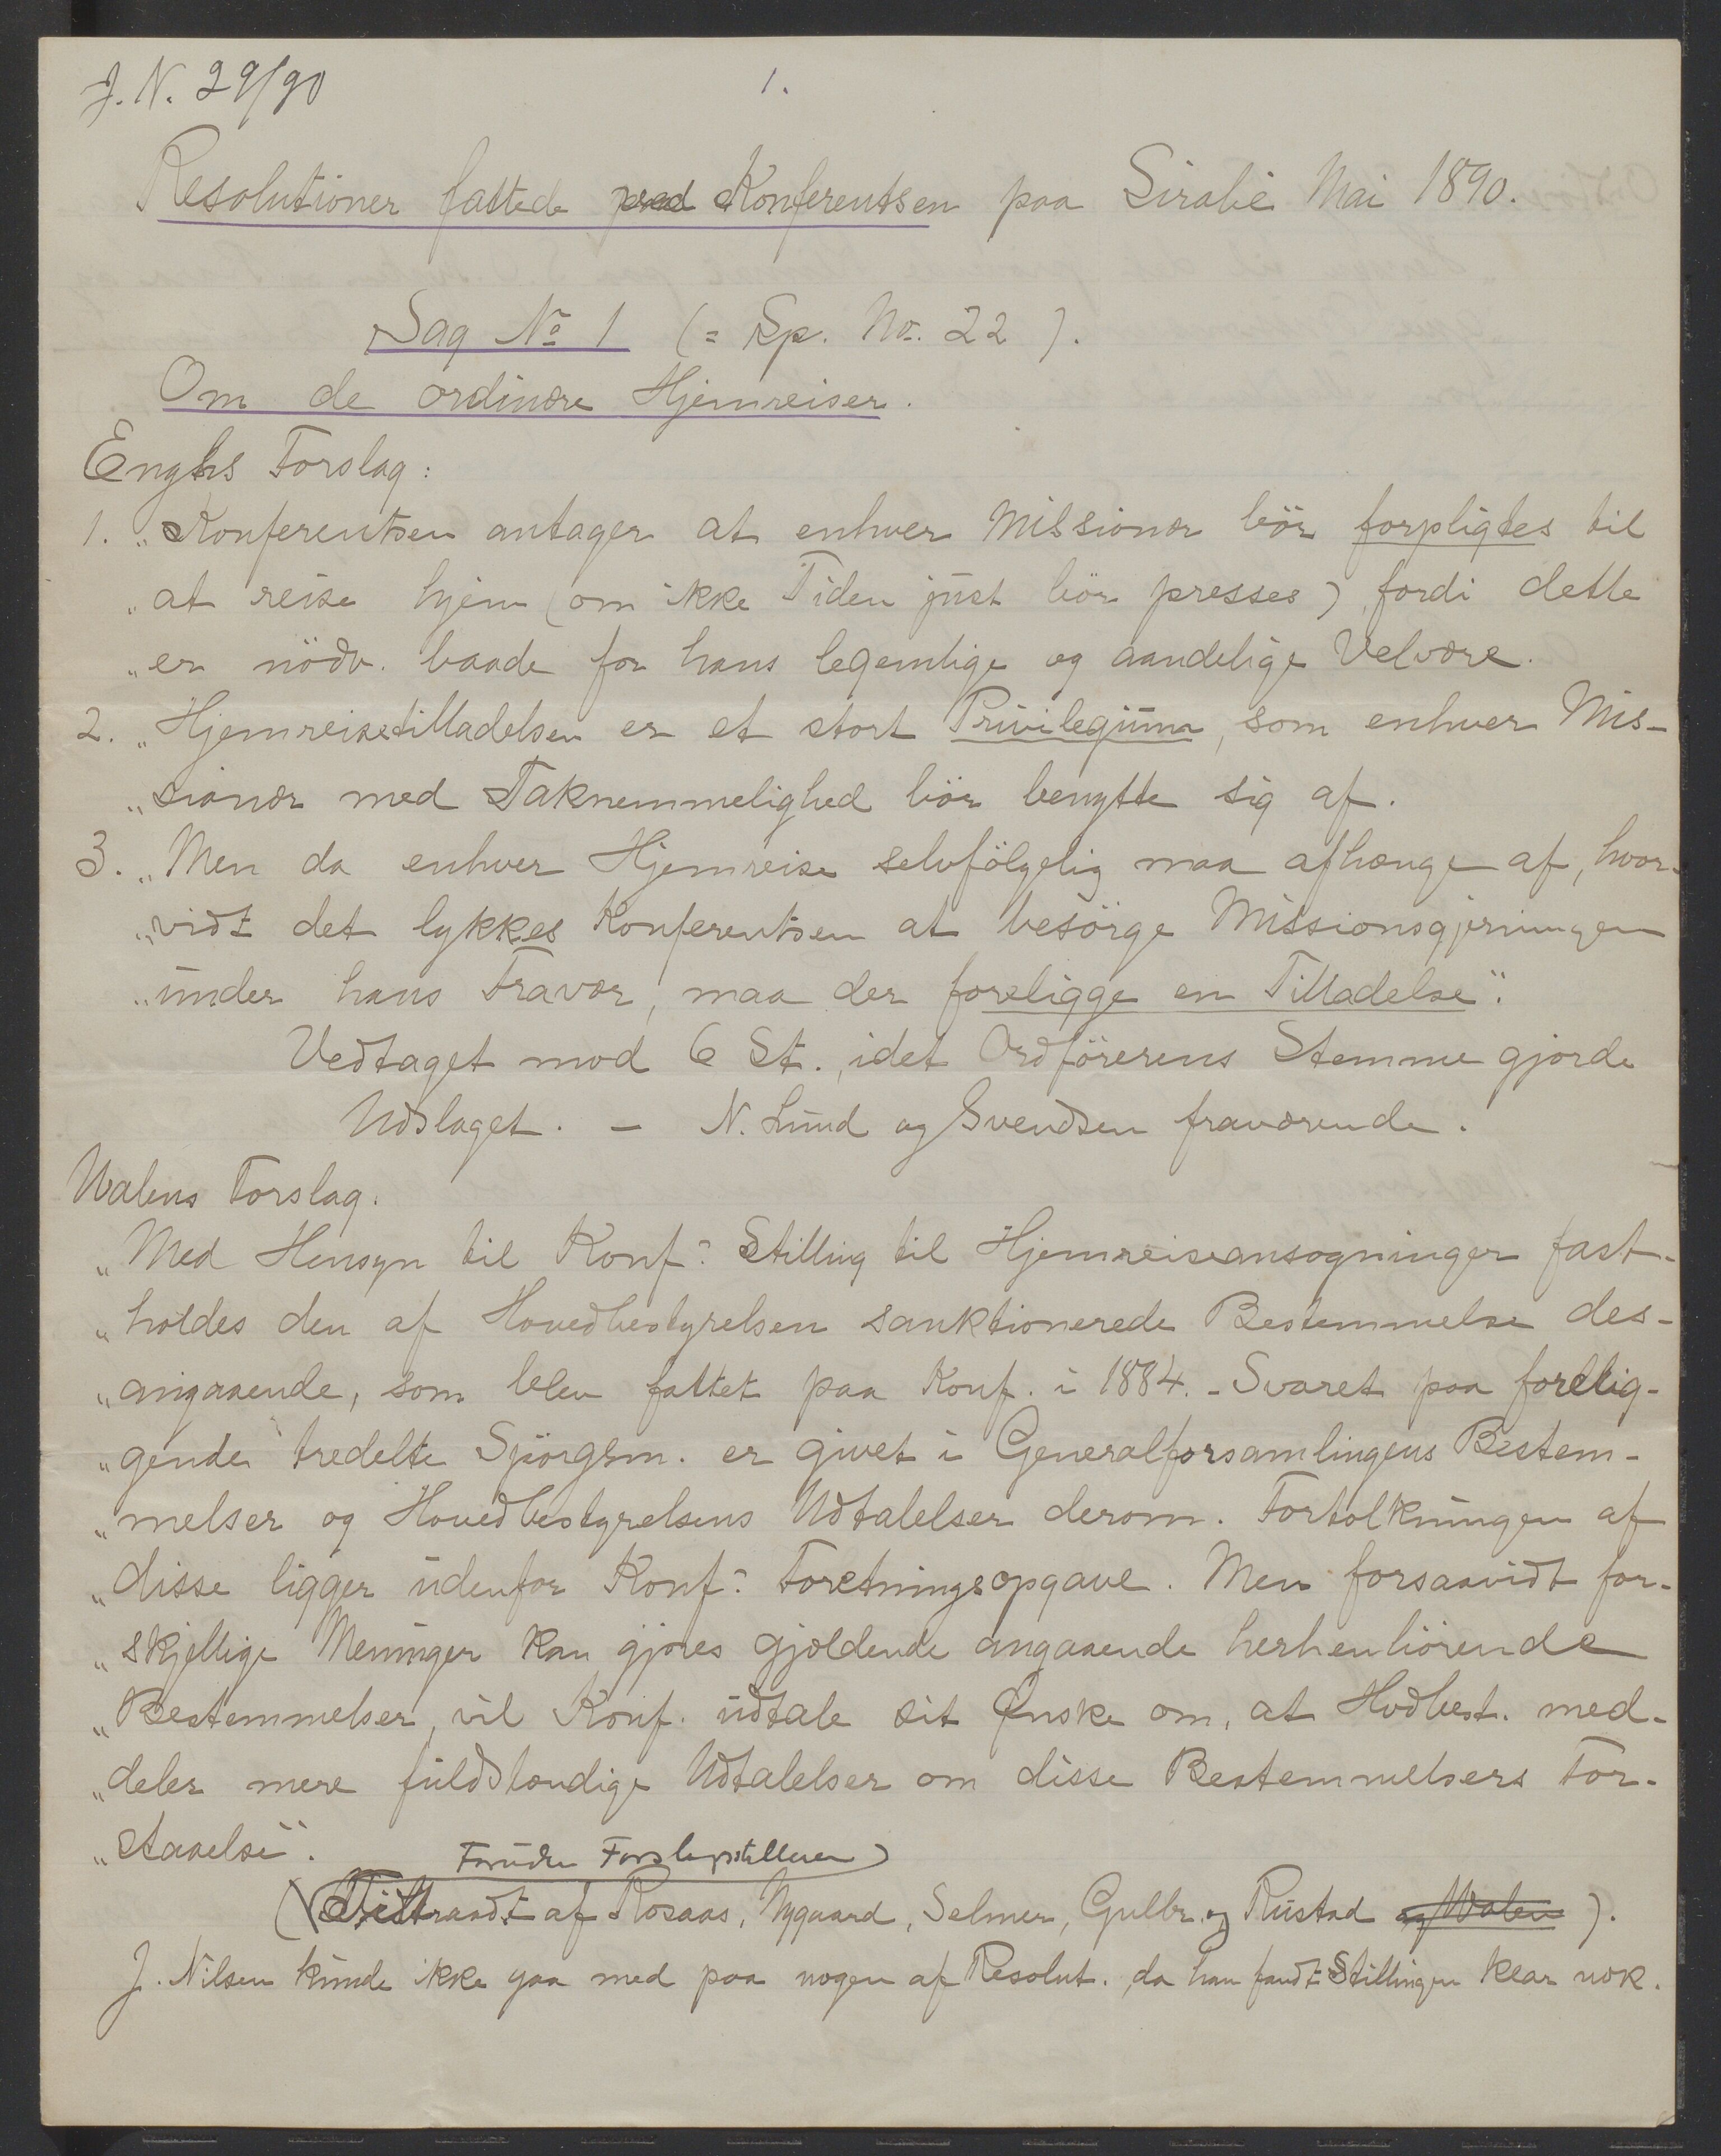 J. N. 29/90
1.
Resolutioner fattede ved Konferentsen paa Sirabé Mai 1890.
Sag No 1 (= Sp. No. 22).
Om de ordinære Hjemreiser.
Enghs Forslag:
1. „Konferentsen antager at enhver Missionær bör forpligtes til
„at reise hjem (om ikke Tiden just bör presses) fordi dette
„er nödv. baade for hans legemlige og aandelige Velvære.
2. „Hjemreisetilladelsen er et stort Privilegium, som enhver Mis-
„sionær med Taknemmelighed bör benytte sig af.
3. „Men da enhver Hjemreise selvfölgelig maa afhænge af, hvor-
„vidt det lykkes Konferentsen at besörge Missionsgjerningen
„under hans Fravær, maa der foreligge en Tilladelse".
Vedtaget mod 6 St., idet Ordförerens Stemme gjorde
Udslaget. – N. Lund og Svendsen fraværende.
Walens Forslag.
„Med Hensyn til Konf: Stilling til Hjemreiseansogninger fast-
„holdes den af Hovedbestyrelsen sanktionerede Bestemmelse des-
„angaaende, som blev fattet paa Konf. i 1884. - Svaret paa forelig-
„gende tredelte Spörgsm. er givet i Generalforsamlingens Bestem-
„melser og Hovedbestyrelsens Udtalelser derom. Fortolkningen af
„disse ligger udenfor Konf: Foretningsopgave. Men forsaavidt for-
„skjellige Meninger kan gjøres gjældende angaaende herhenhörende
„Bestemmelser, vil Konf. udtale sit Ønske om, at Hvdbest. med-
„deler mere fuldstændige Udtalelser om disse Bestemmelsers For-
„staaelse".
Foruden Forslagsstilleren)
(Tiltraadt af Rosaas, Nygaard, Selmer, Gulbr. og Rustad og Walen).
J. Nilsen kunde ikke gaa med paa nogen af Resolut. da han fandt Stillingen klar nok.